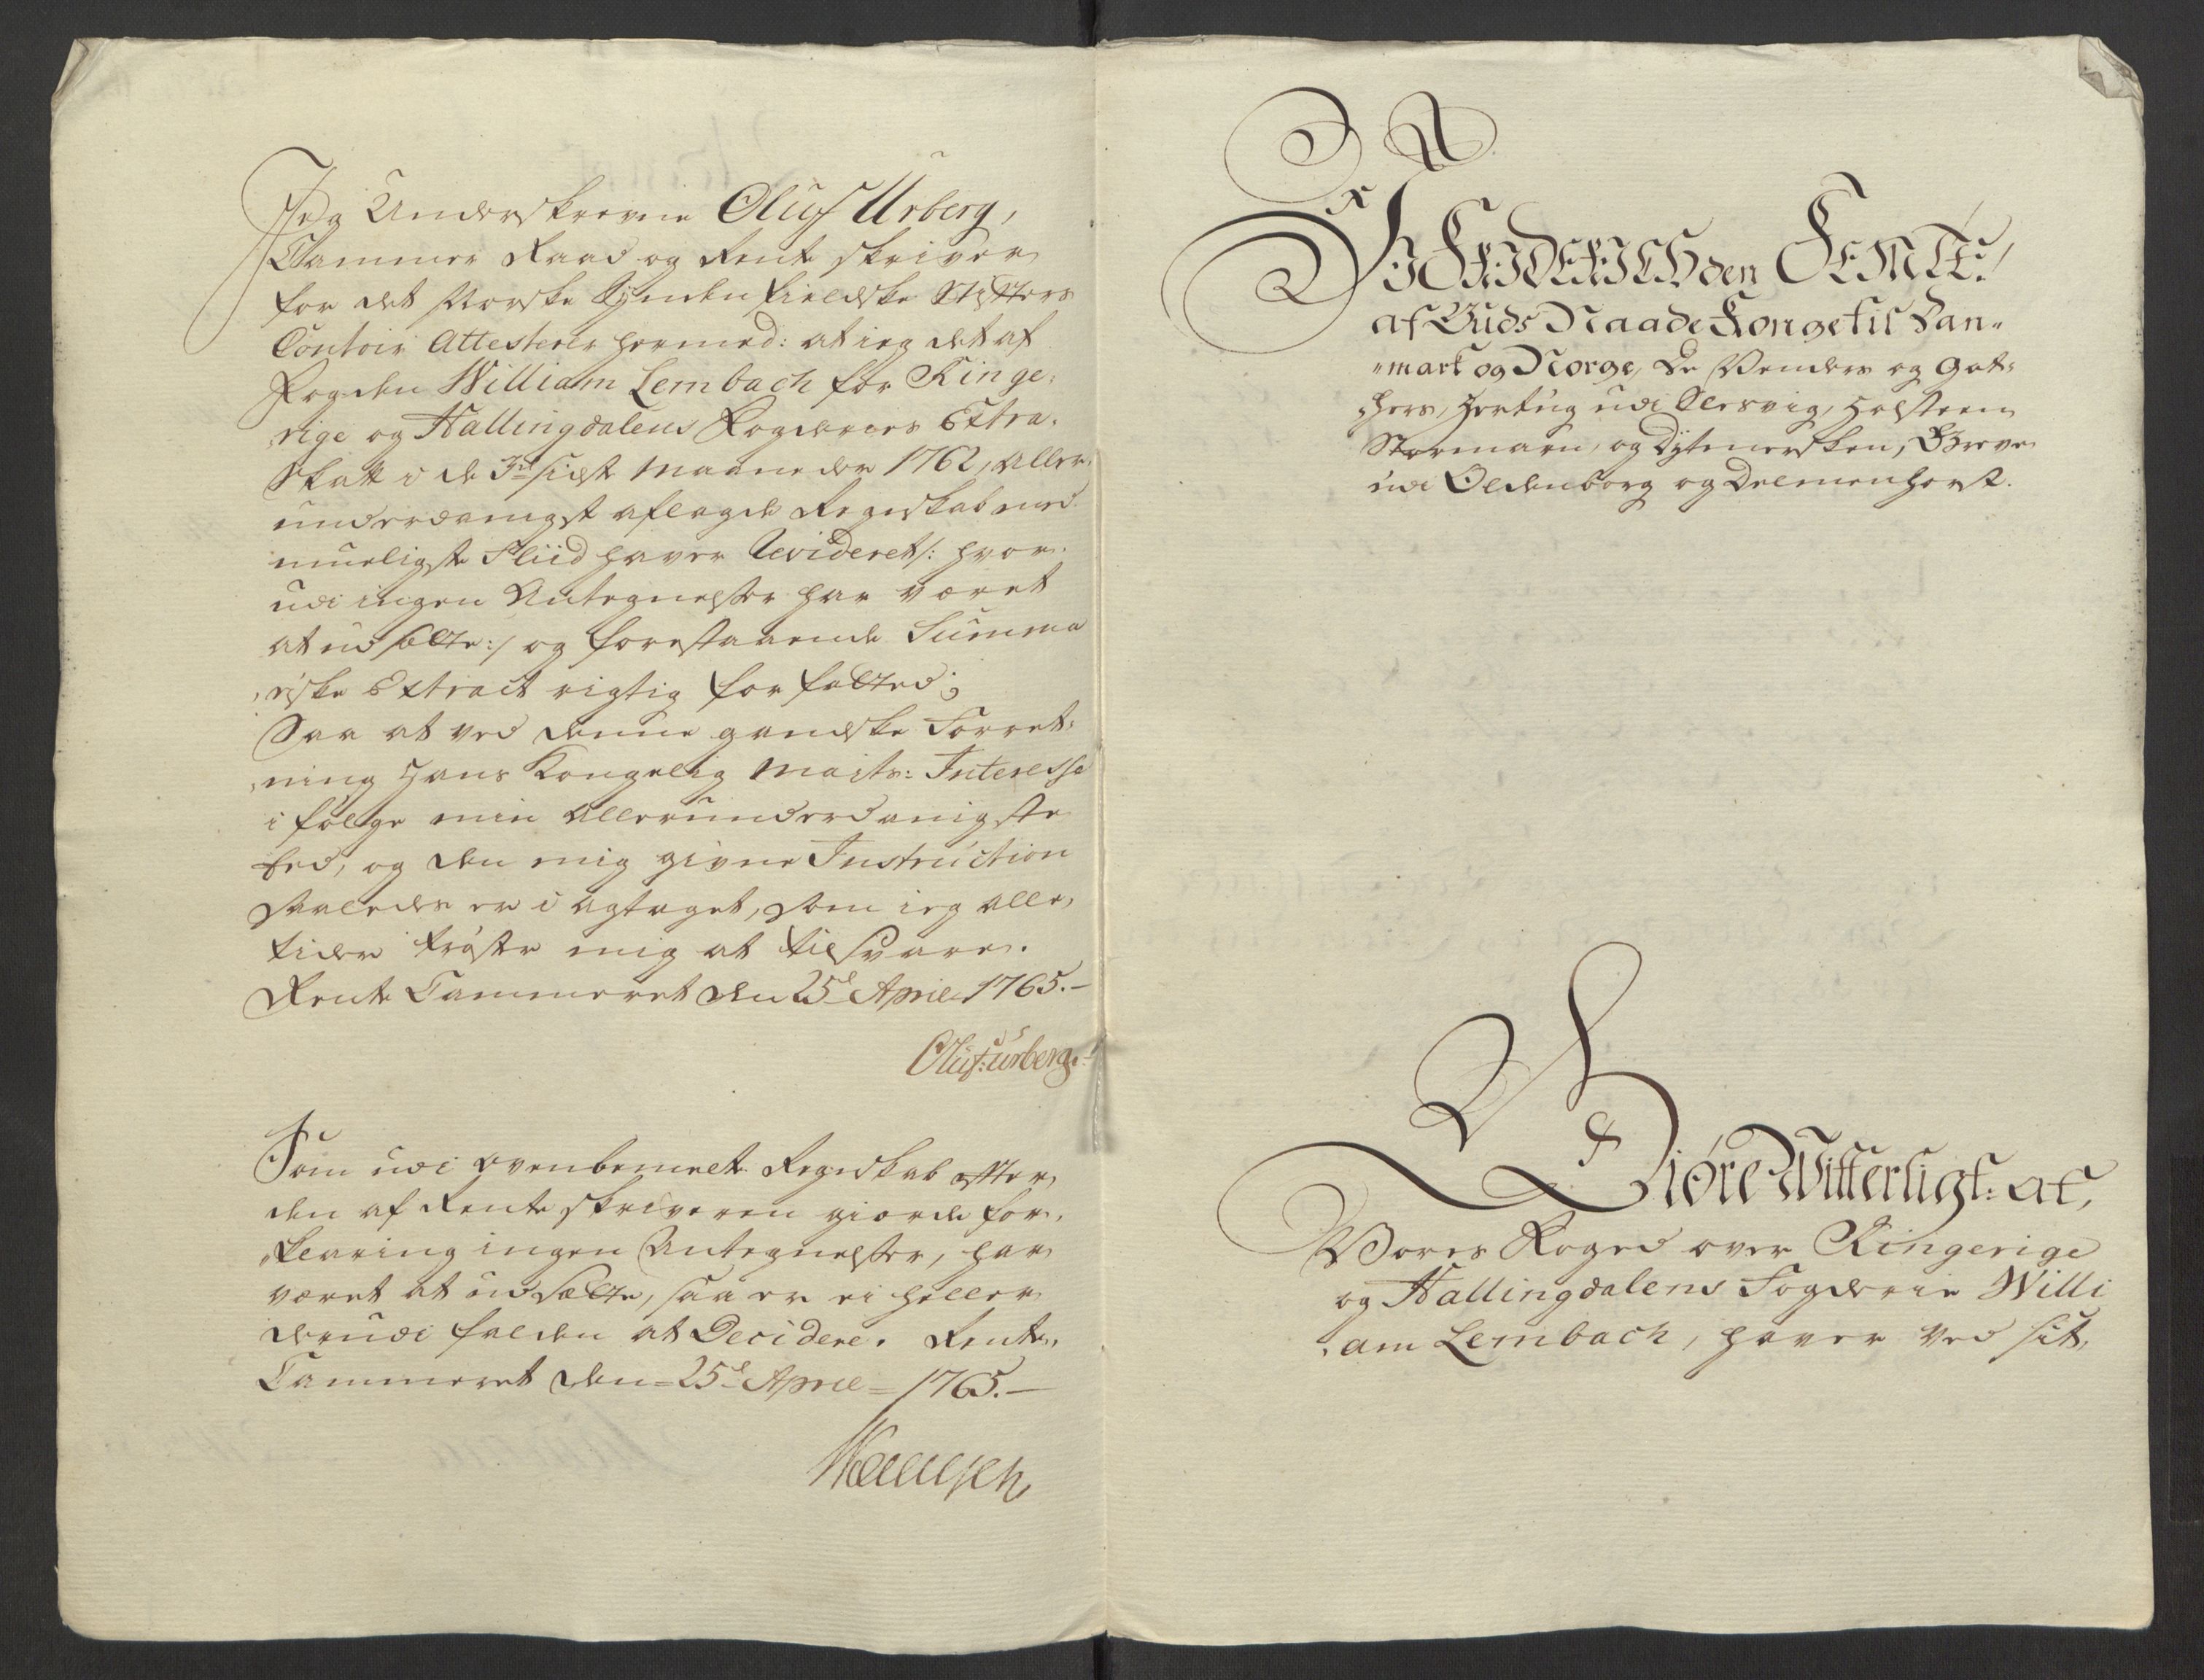 Jeg Underskrevne Oluf Urberg,
Cammer Raad og Rente skriver
for det Norske Synden fieldske Stifters
Contoir Attesterer hermed: at ieg det af
Fogden William Lembach for Ringe-
rige og Hallingdalens Fogderies Extra-
Skatt i de 3de sidste Maaneder 1762, aller-
underdanigst aflagde Regnskab med
mueligste Fliid haver Revideret /: hvor-
udi ingen Antegnelser har været
at udsætte :/ og forestaaende Summa
riske Extract rigtig forfatted;
Saa at ved denne gandske Forret-
ning Hans Kongelig Maits: Interesse
i følge min allerunderdanigste
Eed, og den mig givne Instruction
saaledes er i agtaget, som ieg alle-
tider trøster mig at tilsvare.
Rente Cammeret den 25d April 1765.-
Oluf: Urberg.-
Som udi ovenbemelte Regnskab efter
den af Rente skriveren giorde for-
klaring ingen Antegnelser, har
været at udsætte, saa er ei heller
derudi falden at Decidere. Rente-
Cammeret den = 25d April = 1765.-
VI FRIDERICH den FEMTE,
af Guds Naade Konge til Dan-
mark og Norge, De Venders og Got-
hers, Hertug udi Slesvig, Holsteen
Stormarn, og Dytmersken, Greve
udi Oldenborg og Delmenhorst.
Giøre Witterligt: at,
Vores Foged over Ringerige
og Hallingdalens Fogderie Willi
am Lembach, haver ved sit,